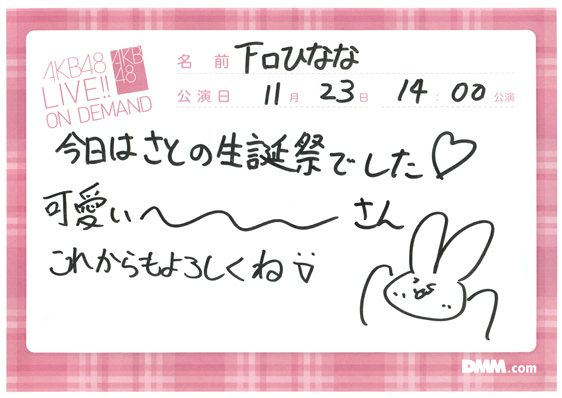 AKB48
LIVE!!
ON DEMAND
AKB
48
名前 下口ひなな
公演日 11月 23日 14:00公演
今日はさとの生誕祭でした♡
可愛い〜〜〜さん
これからもよろしくね
DMM.com